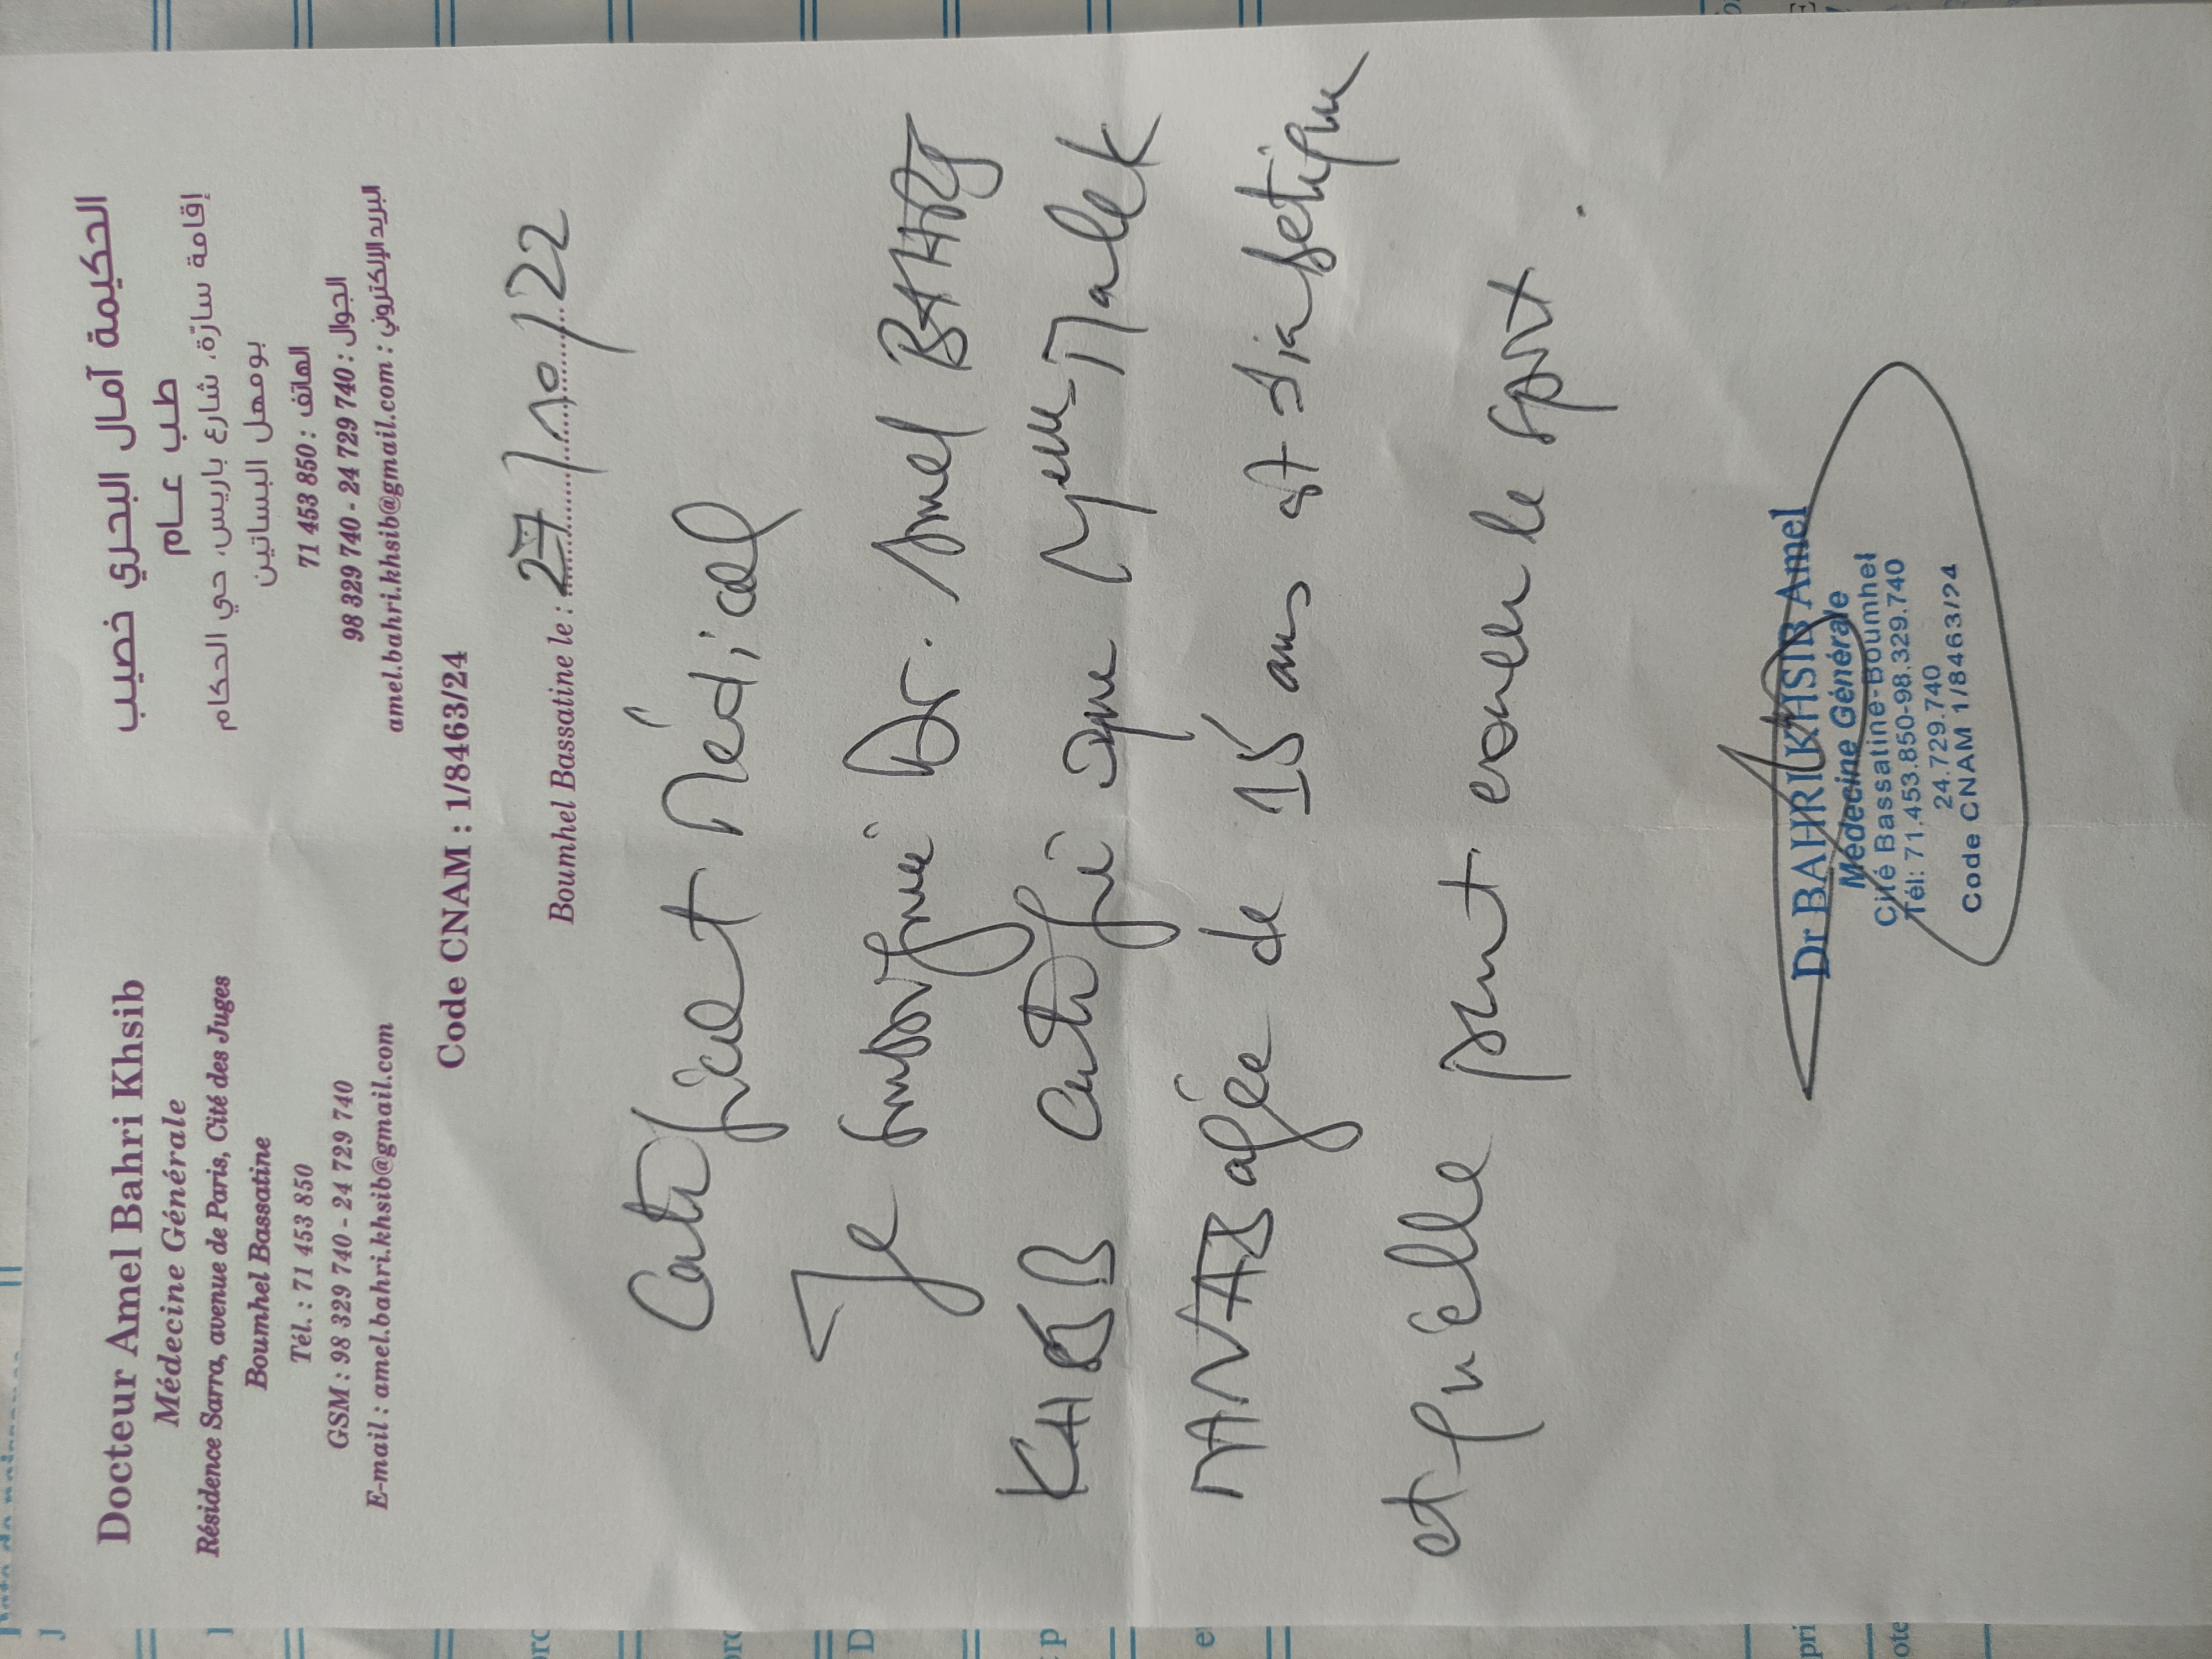 Docteur Amel Bahri Khsib
Médecine Générale
Résidence Sarra, avenue de Paris, Cité des Juges
Boumhel Bassatine
Tél. : 71 453 850
GSM : 98 329 740 - 24 729 740
E-mail : amel.bahri.khsib@gmail.com
الحكيمة آمال البحري خصيب
طب عام
إقامة سارّة، شارع باريس، حي الحكام
بومهل البساتين
الهاتف : 850 453 71
الجوال : 740 729 24 - 740 329 98
البريد الإلكتروني : amel.bahri.khsib@gmail.com
Code CNAM : 1/8463/24
Boumhel Bassatine le : 27/10/22
Certificat Médical
Je soussigné Dr. Amel BAHRI
KHSIB certifie que Melle Malek
agée de 15 ans est diabétique
et qu'elle peut exercer le sport.
Dr BAHRI KHSIB Amel
Médecine Générale
Cité Bassatine-Boumhel
Tél: 71.453.850-98.329.740
24.729.740
Code CNAM 1/8463/24